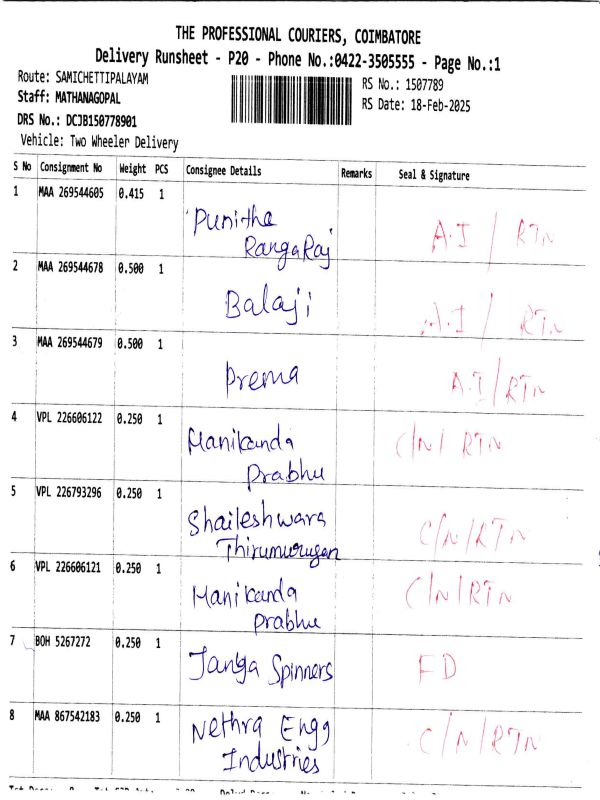 THE PROFESSIONAL COURIERS, COIMBATORE
Delivery Runsheet - P20 - Phone No.:0422-3505555 - Page No.:1
Route: SAMICHETTIPALAYAM
RS No.: 1507789
Staff: MATHANAGOPAL
RS Date: 18-Feb-2025
DRS No.: DCJB150778901
Vehicle: Two Wheeler Delivery
S No Consignment No Weight PCS Consignee Details Remarks Seal & Signature
1 MAA 269544605 0.415 1
Punitha
RangaRaj A.I / RTn
2 MAA 269544678 0.500 1
Balaji A.I / RTn
3 MAA 269544679 0.500 1
Prema A.I/RTn
4 VPL 226606122 0.250 1
Manikanda C/N/ RTN
Prabhu
5 VPL 226793296 0.250 1
Shaileshwara
Thirumurugan C/N/RTN
6 VPL 226606121 0.250 1
Manikanda C/N/RTN
Prabhu
7 BOH 5267272 0.250 1
Spinners FD
8 MAA 867542183 0.250 1
Nethra Engg
Industries C/N/RTN